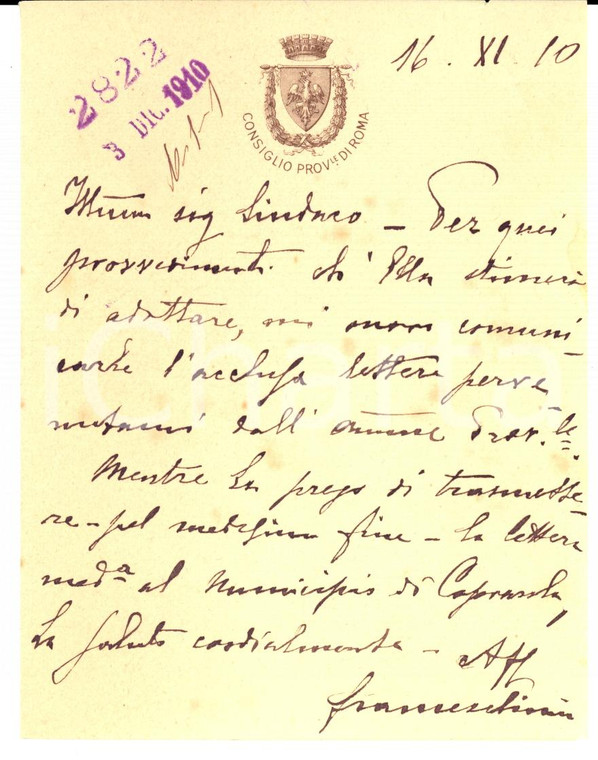 2822
3 DIC. 1910
16 . XI. 10
CONSIGLIO PROV.LE DI ROMA
Illmo sig Sindaco – Per quei
provvedimenti ch' Ella stimerà
di adottare, mi onoro comuni
carle l'acclusa lettera perve
nutami dall' Amme Prov.le.
Mentre La prego di trasmette-
re – pel medesimo fine – la lettera
med.a al Municipio di Caprarola,
La saluto cordialmente –
Aff
iCharta